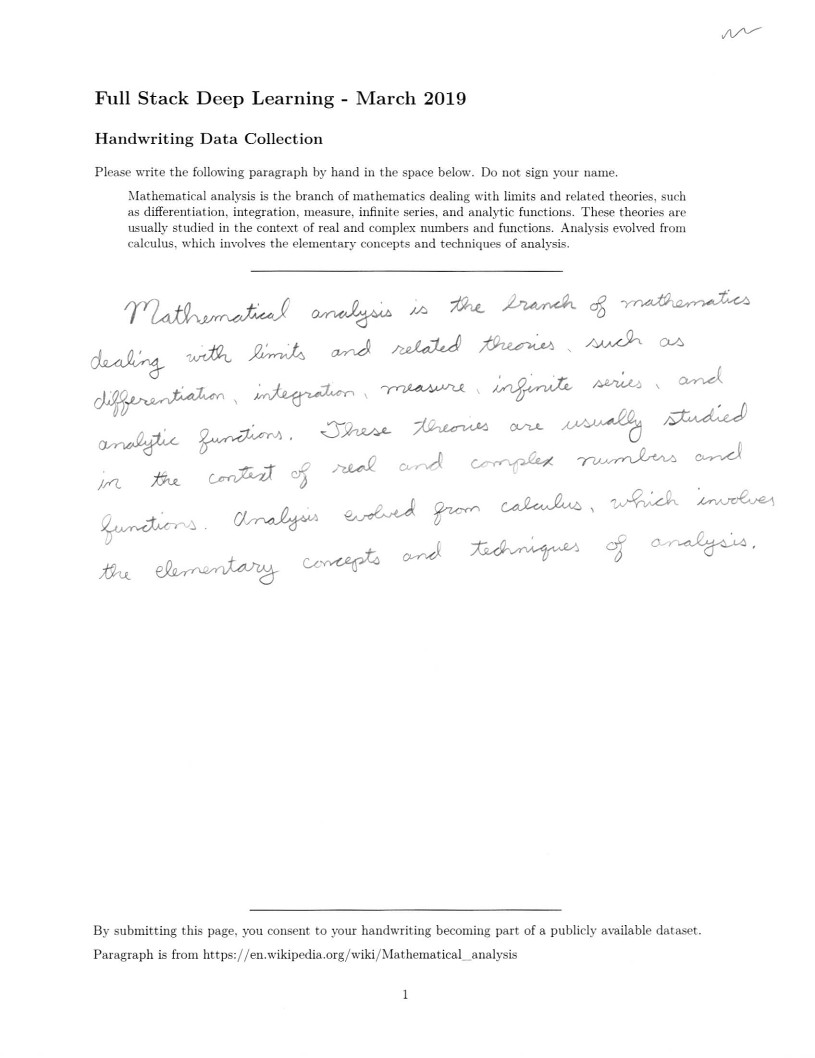 Full Stack Deep Learning - March 2019
Handwriting Data Collection
Please write the following paragraph by hand in the space below. Do not sign your name.
Mathematical analysis is the branch of mathematics dealing with limits and related theories, such
as differentiation, integration, measure, infinite series, and analytic functions. These theories are
usually studied in the context of real and complex numbers and functions. Analysis evolved from
calculus, which involves the elementary concepts and techniques of analysis.
Mathematical analysis is the branch of mathematics
dealing with limits and related theories, such as
differentiation, integration, measure, infinite series, and
analytic functions. These theories are usually studied
in the context of real and complex numbers and
functions. Analysis evolved from calculus, which involves
the elementary concepts and techniques of analysis.
By submitting this page, you consent to your handwriting becoming part of a publicly available dataset.
Paragraph is from https://en.wikipedia.org/wiki/Mathematical_analysis
1